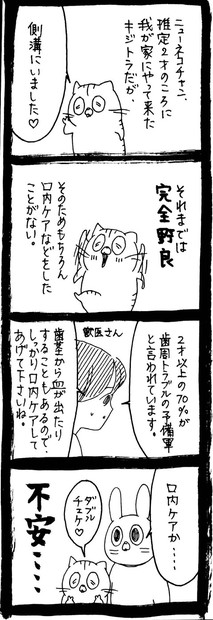 ニューネコチャン、
推定2才のころに
我が家にやって来た
キジトラだが、
側溝にいました♡
それまでは
完全野良
そのためもちろん
口内ケアなどをした
ことがない。
2才以上の70%が
歯周トラブルの予備軍
と言われています。
獣医さん
歯茎から血が出たり
することもあるので、
しっかり口内ケアして
あげて下さいね。
口内ケアか・・・・
ダブル
チェケ♡
不安・・・・